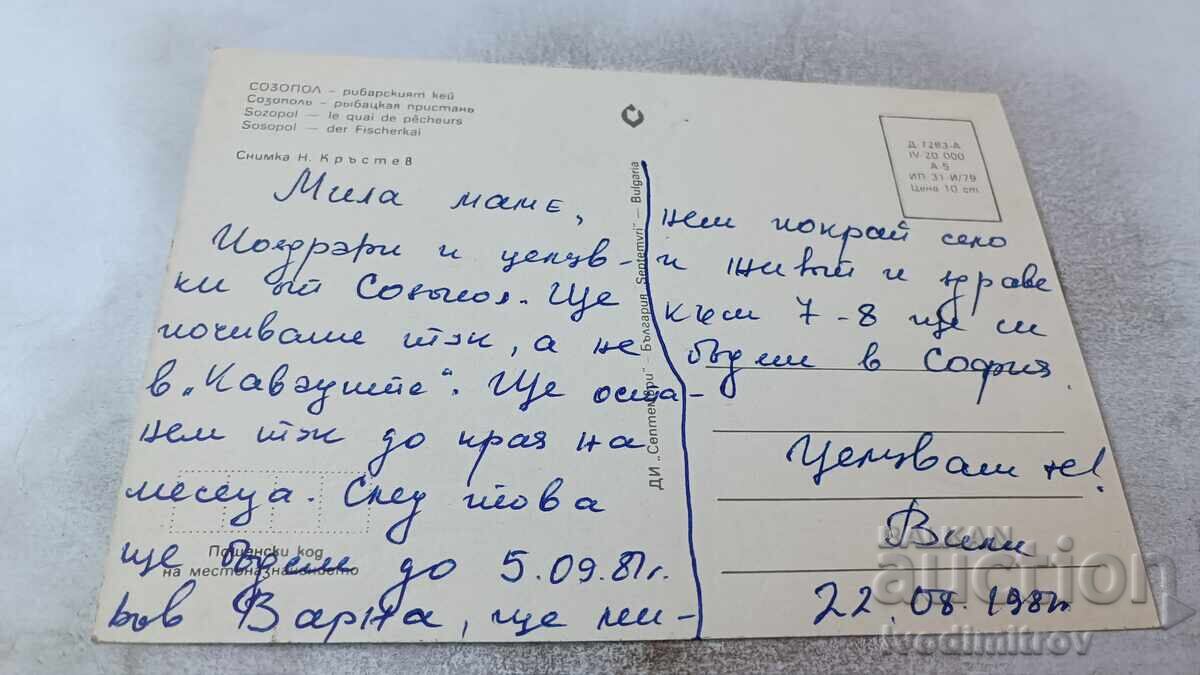 СОЗОПОЛ - рибарският кей
Созополь - рыбацкая пристань
Sozopol — le quai de pêcheurs
Sosopol — der Fischerkai
Снимка Н. Кръстев
Мила маме,
Поздрави и целув-
ки от Созопол. Ще
почиваме тук, а не
в „Кавзците“. Ще оста-
нем тук до края на
месеца. След това
ще бъдем до 5.09.87г.
във Варна, ще ми-
Пощенски код
на местоназначението
ДИ „Септември“ - България „Septemvri“ — Bulgaria
Д 7283-А
IV-20 000
А 5
ИП 31-И/79
Цена 10 ст.
нем покрай село
и живи и здрави
към 7-8 ще си
бъдем в София.
Целувам те!
Вили
22.08.1987г.
BALKAN
auction
ivodimitrov